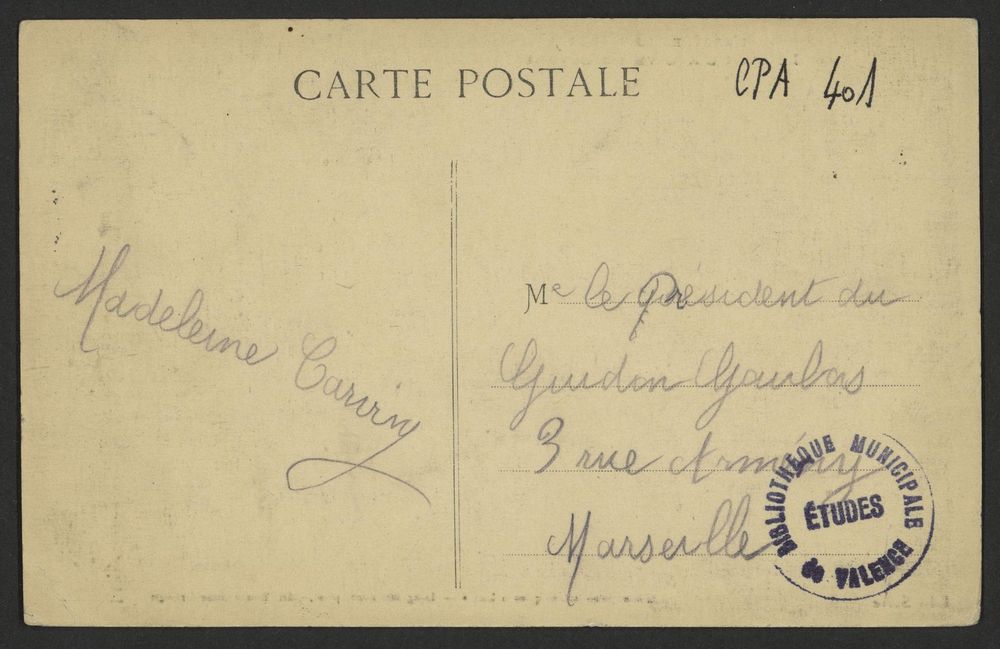 CARTE POSTALE
CPA 401
Madeleine
Me le Président du
Guidon Gaulois
3 rue Armény
Marseille
BIBLIOTHÈQUE MUNICIPALE
ÉTUDES
DE VALENCE